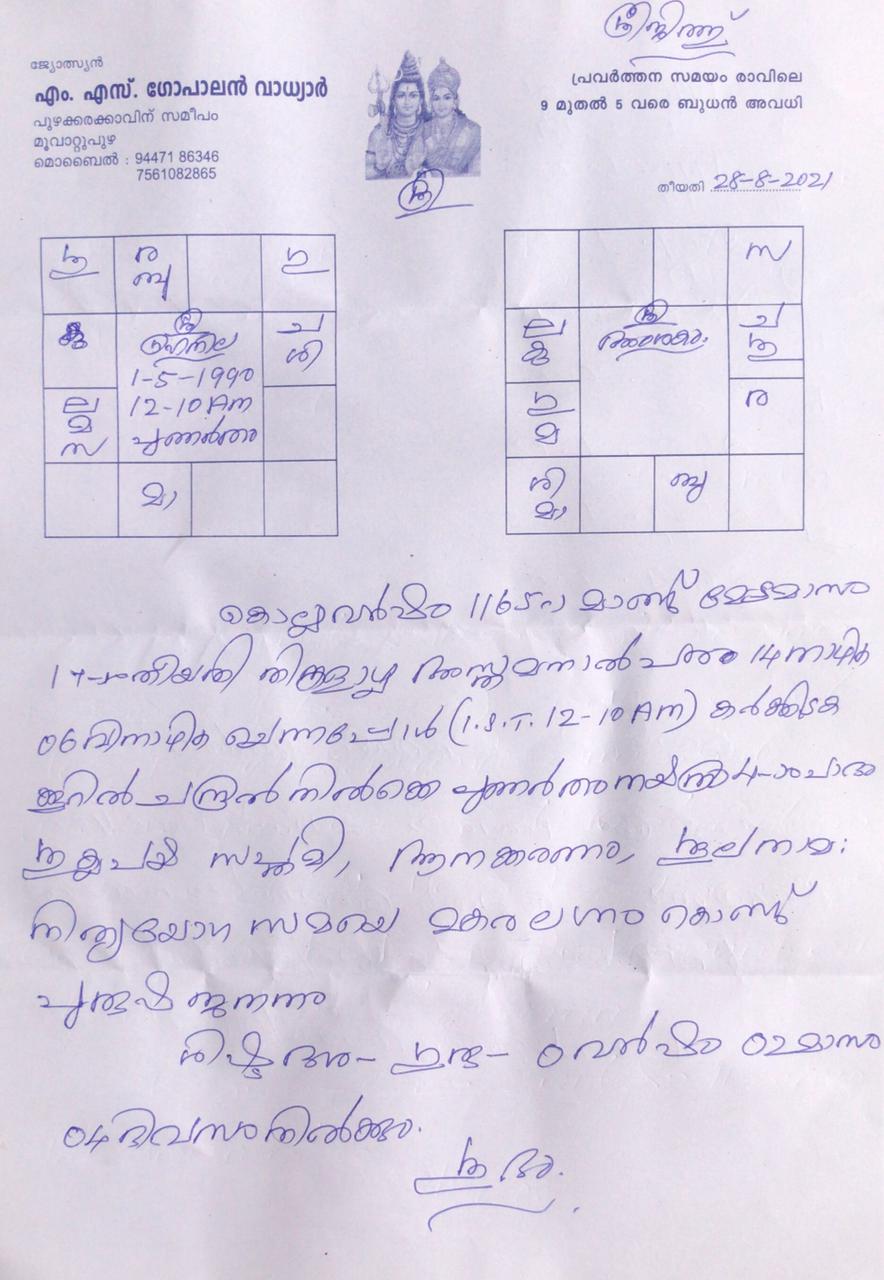 ശ്രീജിത്ത്
ജ്യോത്സ്യൻ
എം. എസ്. ഗോപാലൻ വാധ്യാർ
പുഴക്കരക്കാവിന് സമീപം
മൂവാറ്റുപുഴ
മൊബൈൽ : 94471 86346
7561082865
പ്രവർത്തന സമയം രാവിലെ
9 മുതൽ 5 വരെ ബുധൻ അവധി
തീയതി 28-8-2021
ശ്രീ
ശു
ര
ബു
ഗു
കു
ച
ശി
ല
മ
സ
മാ
ശ്രീ
ഗ്രഹനില
1-5-1990
12-10 AM
പുണർതം
സ
ല
കു
ച
ശു
ഗു
മ
ര
ശി
മാ
ബു
ശ്രീ
അംശകം
കൊല്ലവർഷം 1165 ാ മാണ്ട് മേടമാസം
17-ാംതിയതി തിങ്കളാഴ്ച അസ്തമനാൽപരം 14 നാഴിക
06 വിനാഴിക ചെന്നപ്പോൾ (I.S.T. 12-10 AM) കർക്കിടക
ക്കൂറിൽ ചന്ദ്രൻ നിൽക്കെ പുണർതംനക്ഷത്രം 4-ാംപാദം
ശുക്ലപക്ഷ സപ്തമി, ആനക്കരണം, ശൂലനാമ:
നിത്യയോഗ സമയെ മകര ലഗ്നം കൊണ്ട്
പുരുഷ ജനനം
ശിഷ്ട ദശ- ഗുരു- 0 വർഷം 02 മാസം
04 ദിവസം നിൽക്കും.
ശുഭം.